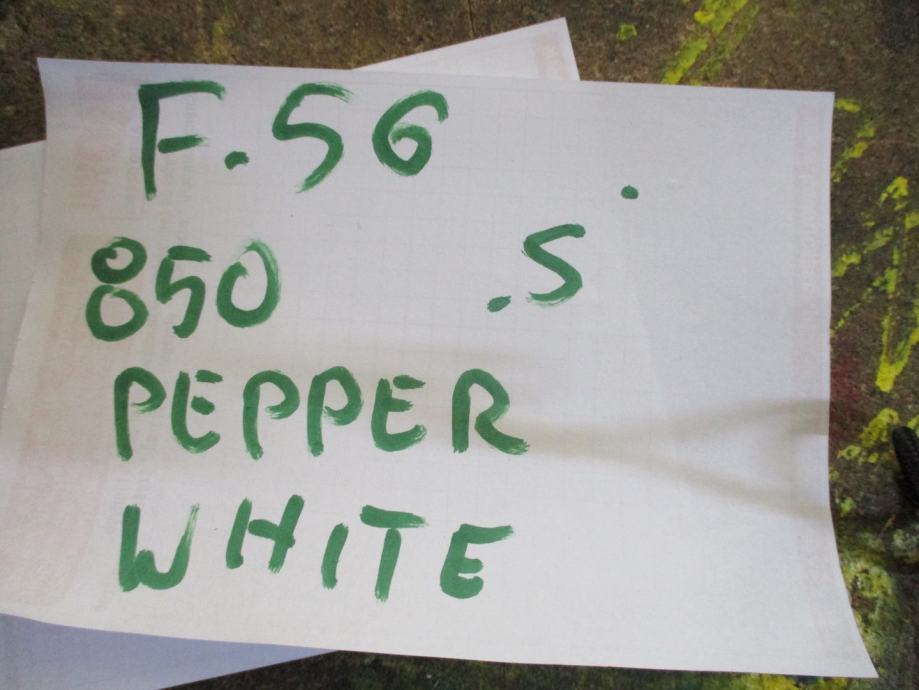 F.56
850 .S
PEPPER
WHITE